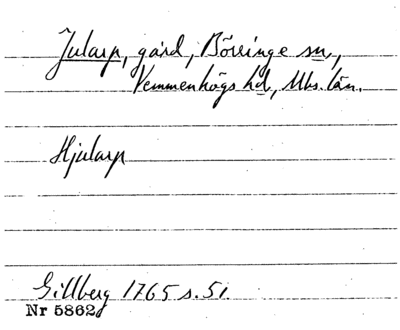 Julasp, gård, Börringe sn,
Vemmenhögs hd, Mbs. län.
Hjularp
Gillberg 1765 s. 51.
Nr 5862